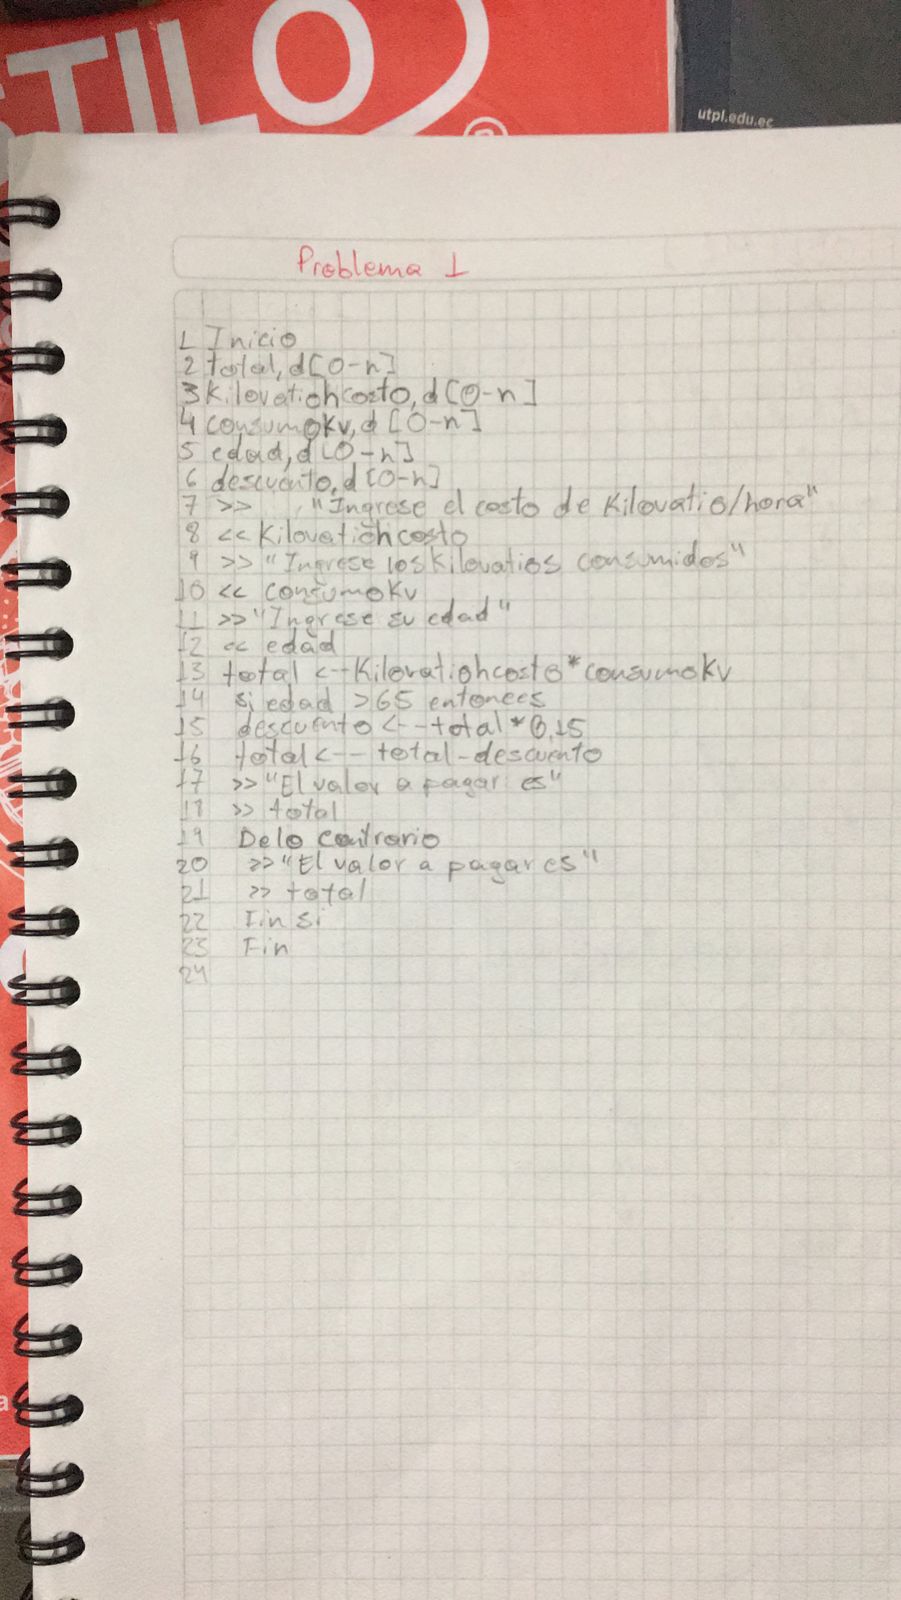 STILO
®
utpl.edu.ec
Problema 1
1 Inicio
2 total, d[0-n]
3 Kilovatiohcosto, d [0-n]
4 consumokv, d [0-n]
5 edad, d [0-n]
6 descuento, d [0-n]
7 >> "Ingrese el costo de Kilovatio/hora"
8 << Kilovatiohcosto
9 >> "Ingrese los Kilovatios consumidos"
10 << consumokv
11 >> "Ingrese su edad"
12 << edad
13 total <-- Kilovatiohcosto * consumokv
14 si edad > 65 entonces
15 descuento <-- total * 0,15
16 total <-- total - descuento
17 >> "El valor a pagar es"
18 >> total
19 De lo contrario
20 >> "El valor a pagar es"
21 >> total
22 Fin si
23 Fin
24